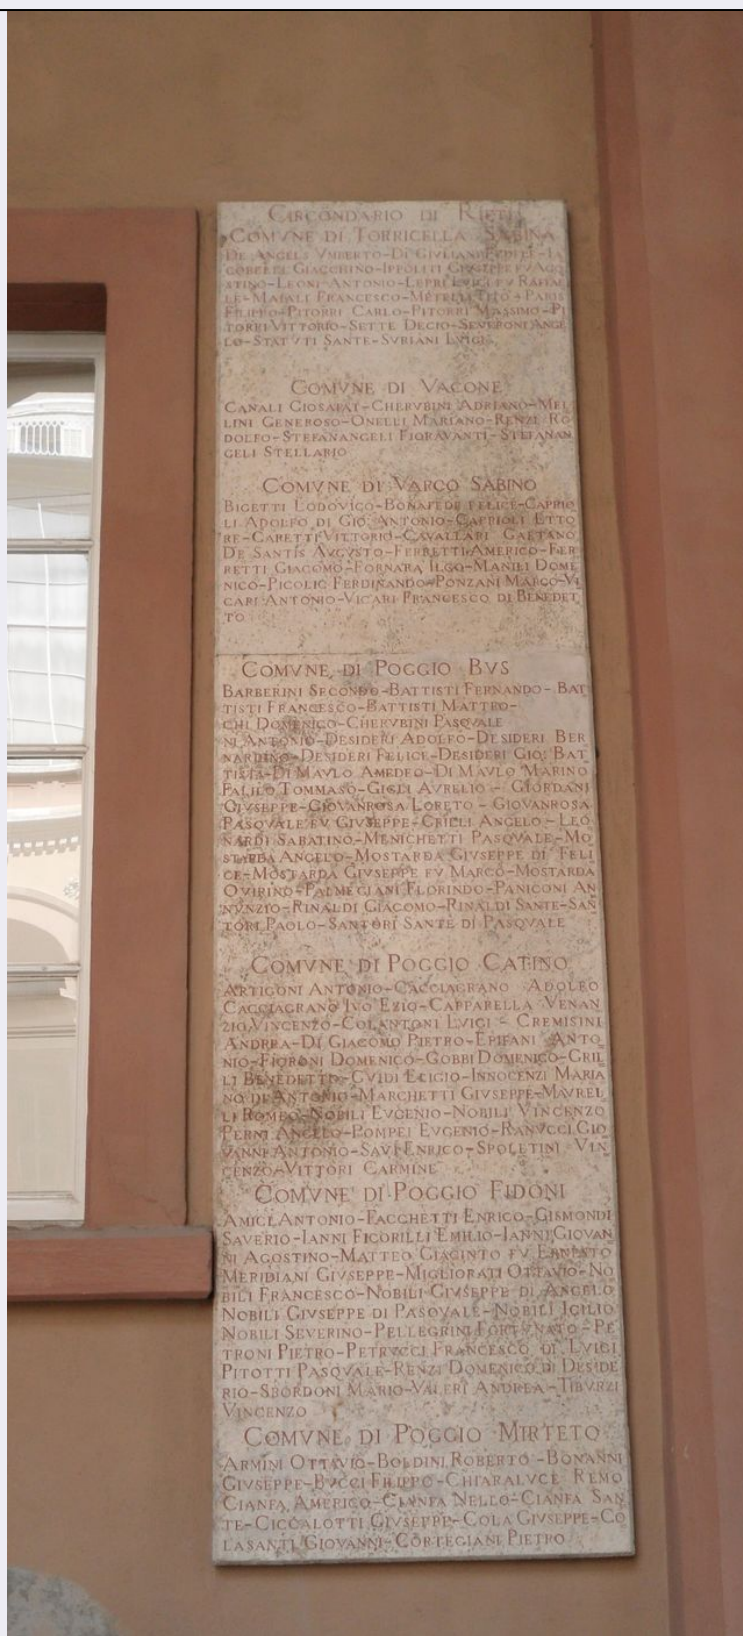 CIRCONDARIO DI RIETI
COMVNE DI TORRICELLA SABINA
DE ANGELS VMBERTO-DI GIVLIANI FEDELE-I
COBELLI GIACCHINO-IPPOLITI GIVSEPPE FV AGO
STINO-LEONI ANTONIO-LEPRI LVIGI FV RAFFAE
LE-MAIALI FRANCESCO-METELLI TITO-PARIS
FILIPPO-PITORRI CARLO-PITORRI MASSIMO-PI
TORRI VITTORIO-SETTE DECIO-SEVERONI ANGE
LO-STATVTI SANTE-SVRIANI LVIGI
COMVNE DI VACONE
CANALI GIOSAFAT-CHERVBINI ADRIANO-MEL
LINI GENEROSO-ONELLI MARIANO-RENZI RO
DOLFO-STEFANANGELI FIORAVANTI-STEFANAN
GELI STELLARIO
COMVNE DI VARCO SABINO
BIGETTI LODOVICO-BONAFEDE FELICE-CAPRIO
LI ADOLFO DI GIO ANTONIO-CAPRIOLI ETTO
RE-CARETTI VITTORIO-CAVALLARI GAETANO
DE SANTIS AVGVSTO-FERRETTI AMERICO-FER
RETTI GIACOMO-FORNARA ILGO-MANILI DOME
NICO-PICOLIC FERDINANDO-PONZANI MARCO-VI
CARI ANTONIO-VICARI FRANCESCO DI BENEDET
TO
COMVNE DI POGGIO BVS
BARBERINI SECONDO-BATTISTI FERNANDO-BAT
TISTI FRANCESCO-BATTISTI MATTEO-
CHI DOMENICO-CHERVBINI PASQVALE
NI ANTONIO-DESIDERI ADOLFO-DESIDERI BER
NARDINO-DESIDERI FELICE-DESIDERI GIO: BAT
TISTA-DI MAVLO AMEDEO-DI MAVLO MARINO
FALILO TOMMASO-GIGLI AVRELIO-GIORDANI
GIVSEPPE-GIOVANROSA LORETO-GIOVANROSA
PASQVALE FV GIVSEPPE-GRILLI ANGELO-LEO
NARDI SABATINO-MENICHETTI PASQVALE-MO
STARDA ANGELO-MOSTARDA GIVSEPPE DI FELI
CE-MOSTARDA GIVSEPPE FV MARCO-MOSTARDA
QVIRINO-PALMEGIANI FLORINDO-PANICONI AN
NVNZIO-RINALDI GIACOMO-RINALDI SANTE-SAN
TORI PAOLO-SANTORI SANTE DI PASQVALE
COMVNE DI POGGIO CATINO
ARTIGONI ANTONIO-CACCIAGRANO ADOLFO
CACCIAGRANO IVO EZIO-CAPPARELLA VENAN
ZIO VINCENZO-COLANTONI LVIGI-CREMISINI
ANDREA-DI GIACOMO PIETRO-EPIFANI ANTO
NIO-FIORONI DOMENICO-GOBBI DOMENICO-GRIL
LI BENEDETTO-GVIDI ELIGIO-INNOCENZI MARIA
NO DI ANTONIO-MARCHETTI GIVSEPPE-MAVREL
LI ROMEO-NOBILI EVGENIO-NOBILI VINCENZO
PERNI ANGELO-POMPEI EVGENIO-RANVCCI GIO
VANNI ANTONIO-SAVI ENRICO-SPOLETINI VIN
CENZO-VITTORI CARMINE
COMVNE DI POGGIO FIDONI
AMICI ANTONIO-FACCHETTI ENRICO-GISMONDI
SAVERIO-IANNI FICORILLI EMILIO-IANNI GIOVAN
NI AGOSTINO-MATTEO GIACINTO FV ERNESTO
MERIDIANI GIVSEPPE-MIGLIORATI OTTAVIO-NO
BILI FRANCESCO-NOBILI GIVSEPPE DI ANGELO
NOBILI GIVSEPPE DI PASQVALE-NOBILI IGILIO
NOBILI SEVERINO-PELLEGRINI FORTVNATO-PE
TRONI PIETRO-PETRVCCI FRANCESCO DI LVIGI
PITOTTI PASQVALE-RENZI DOMENICO DI DESIDE
RIO-SBORDONI MARIO-VALERI ANDREA-TIBVRZI
VINCENZO
COMVNE DI POGGIO MIRTETO
ARMINI OTTAVIO-BOLDINI ROBERTO-BONANNI
GIVSEPPE-BVCCI FILIPPO-CHIARALVCE REMO
CIANFA AMERICO-CIANFA NELLO-CIANFA SAN
TE-CICCALOTTI GIVSEPPE-COLA GIVSEPPE-CO
LASANTI GIOVANNI-CORTEGIANI PIETRO